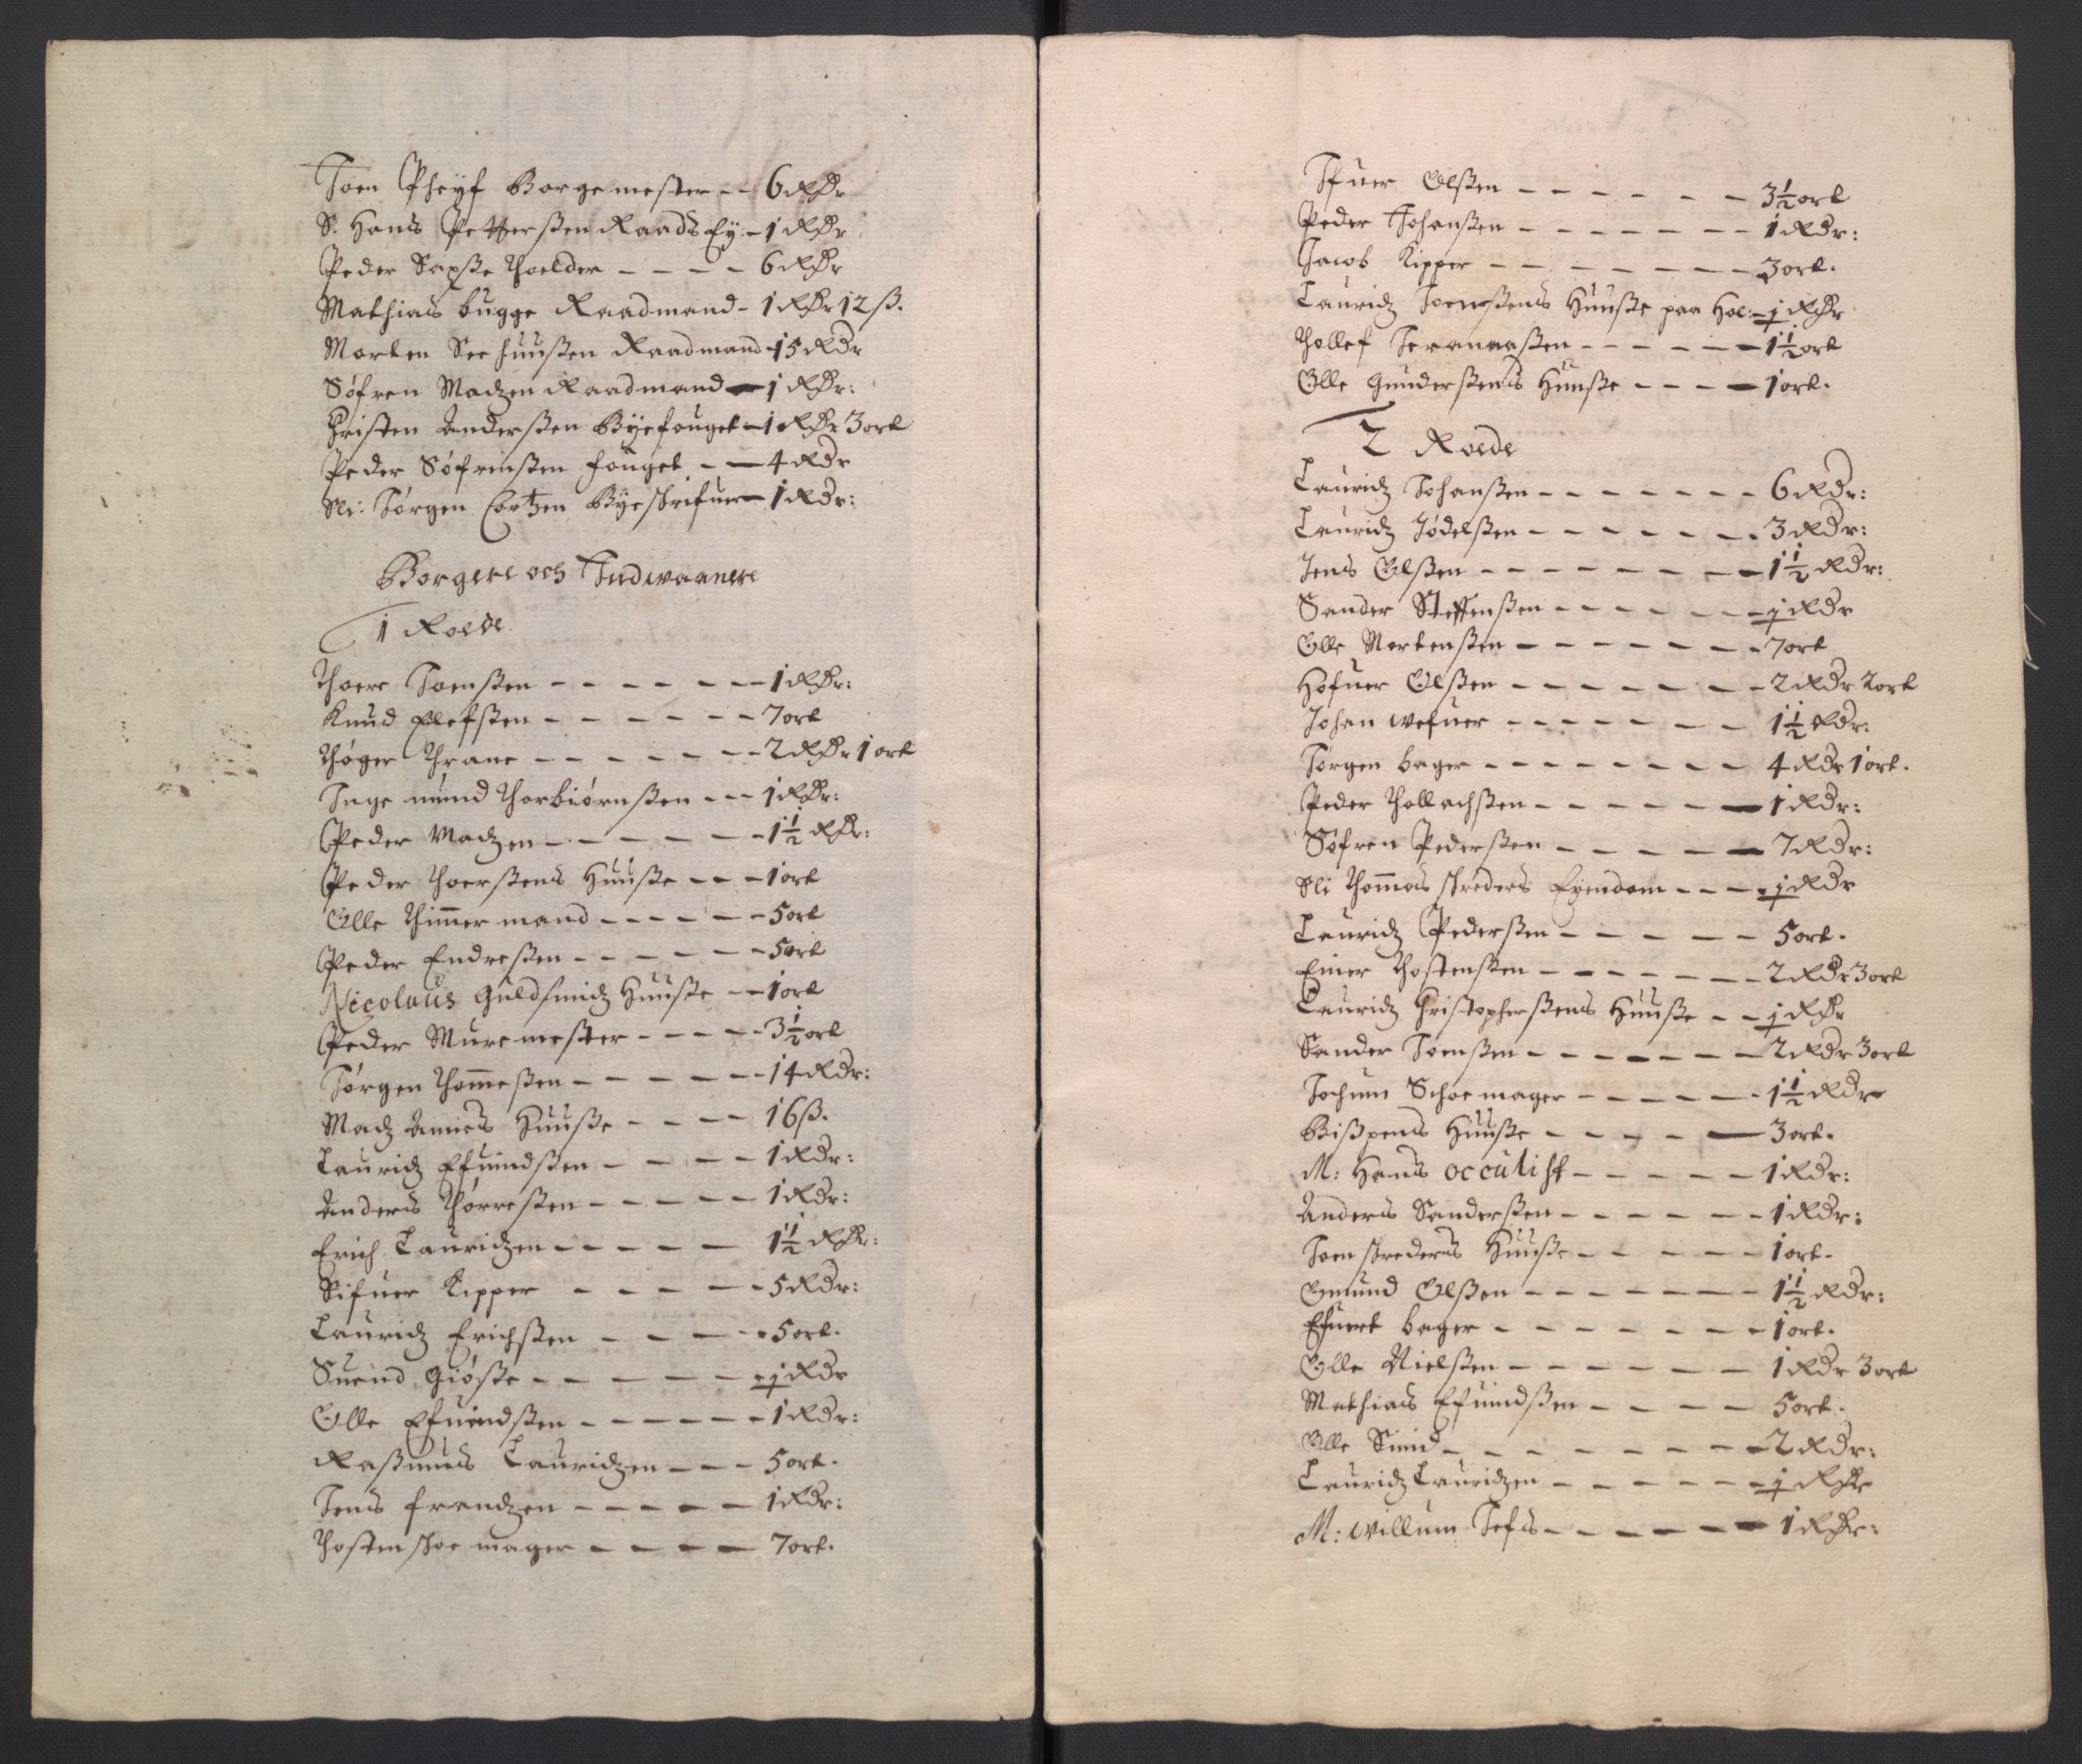 Joen Pheyf Borgemester - - 6 Rdr
Sr. Hans Pettersen Raads Ey: - 1 Rdr
Peder Saxße Tholder - - - - 6 Rdr
Mathias bugge Raadmand - 1 Rdr 12 ß.
Morten Seehuußen Raadmand - 15 Rdr
Søfren Madzen Raadmand - 1 Rdr:
Christen Anderßen Byefouget - 1 Rdr 3 ort
Peder Søfrenßen fouget - - 4 Rdr
Sli: Jørgen Cortzen Byeskrifuer - 1 Rdr:
Borgere och Indwaanere
1 Roede
Thoere Joenßen - - - - - - 1 Rdr:
Knud Elefsen - - - - - - 7 ort
Thøger Thrane - - - - - - 2 Rdr 1 ort
Ingemund Thorbiørnßen - - - 1 Rdr:
Peder Madzen - - - - - - 1½ Rdr:
Peder Thoerßens Huuße - - - 1 ort
Olle Thimmermand - - - - - - 5 ort
Peder Endreßen - - - - - - 5 ort
Nicolaus Guldsmidz Huuße - - 1 ort
Peder Muremester - - - - - 3½ ort
Jørgen Thommeßen - - - - - - 14 Rdr:
Madz Annes Huuße - - - - 16 ß.
Lauridz Efuindßen - - - - - 1 Rdr:
Anders Thorreßen - - - - - 1 Rdr:
Erich Lauridzen - - - - - 1½ Rdr:
Sifuer Kipper - - - - - 5 Rdr:
Lauridz Erichßen - - - - - 5 ort.
Suend Giøße - - - - - - 1 Rdr
Olle Efuindßen - - - - - - 1 Rdr:
Raßmus Lauridzen - - - 5 ort.
Jens frandzen - - - - - 1 Rdr:
Thosten skoemager - - - - 7 ort.
Ifuer Olßen - - - - - - 3½ ort
Peder Johanßen - - - - - - - 1 Rdr:
Jacob Kipper - - - - - - - 3 ort.
Lauridz Joenßens Huuße paa Hol: - 1 Rdr
Thollef - - - - - - 1½ ort
Olle Gunderßens Huuße - - - - 1 ort.
2 Roede
Lauridz Johanßen - - - - - - - 6 Rdr:
Lauridz Jødelßen - - - - - - - 3 Rdr:
Jens Olßen - - - - - - - - 1½ Rdr:
Sander Steffenßen - - - - - - 1 Rdr
Olle Mortenßen - - - - - - - 7 ort
Hofuer Olßen - - - - - - - 2 Rdr 2 ort
Johan wefuer - - - - - - - 1½ Rdr:
Jørgen bager - - - - - - - - 4 Rdr 1 ort.
Peder Thollachßen - - - - - - 1 Rdr:
Søfren Pederßen - - - - - 7 Rdr:
Sli Thommas skreders Eyendom - - - - 1 Rdr
Lauridz Pederßen - - - - - 5 ort.
Einer Thostenßen - - - - - - 2 Rdr 3 ort
Lauridz Christopherßens Huuße - - 1 Rdr
Sander Joenßen - - - - - - - 2 Rdr 3 ort
Jochum Schoemager - - - - - - 1½ Rdr
Bißpens Huuße - - - - - 3 ort.
M: Hans occulist - - - - - 1 Rdr:
Anders Sanderßen - - - - - - 1 Rdr:
Joen skreders Huuße - - - - - 1 ort.
Omund Olßen - - - - - - - 1½ Rdr:
Efuert bager - - - - - - - 1 ort.
Olle Nielßen - - - - - - - 1 Rdr 3 ort
Mathias Efuindßen - - - - 5 ort.
Olle Smid - - - - - - - 2 Rdr:
Lauridz Lauridzen - - - - - - 1 Rdr
M: willum Jefs - - - - - - 1 Rdr: